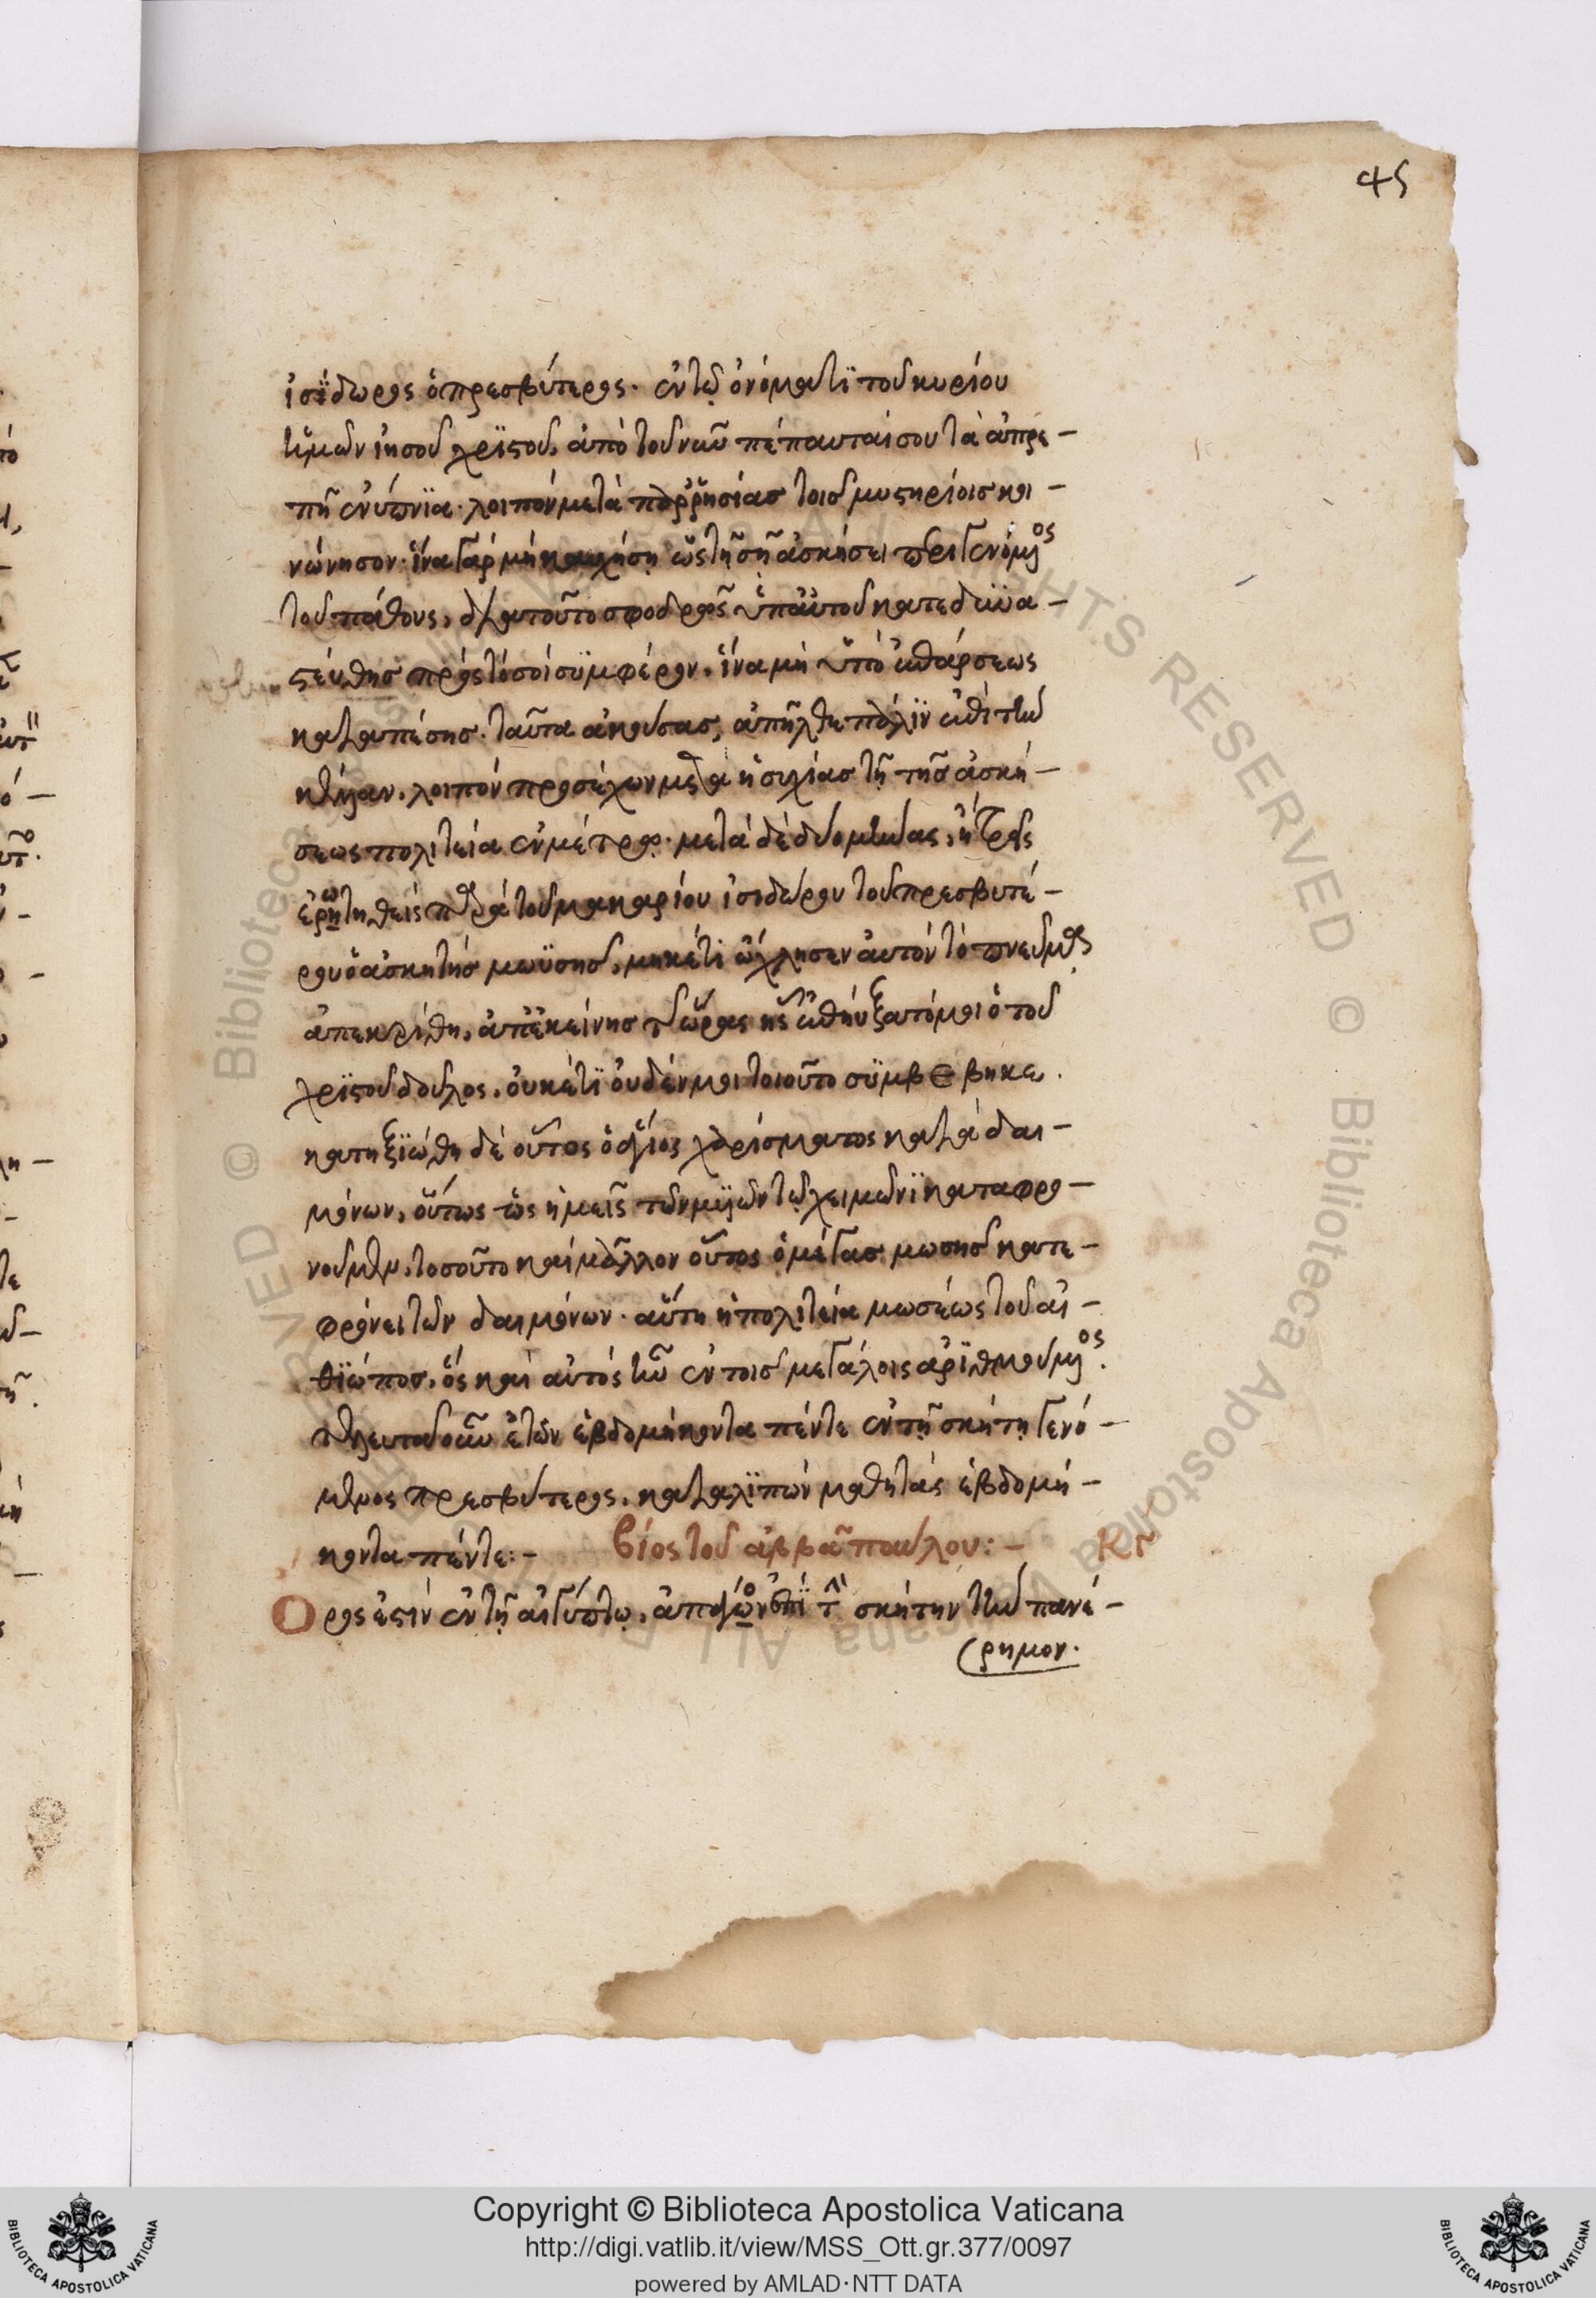 45
ἰσΐδωρος ὁ πρεσβύτερος. ἐν τῷ ὀνόματϊ τοῦ κυρίου
ἡμῶν ἰησοῦ χρϊστοῦ, ἀπὸ τοῦ νῦν πέπαυταί σου τὰ ἀπρε –
πῆ ἐνύπνϊα. λοιπὸν μετὰ παρρησίας τοῖς μυστηρίοις κοι –
νώνησον. ἵνα γὰρ μὴ καυχήσῃ ὡς τῇ σῇ ἀσκήσει περιγενόμενος
τοῦ πάθους, διατοῦτο σφοδρῶς ὑπ' αὐτοῦ κατεδυνα –
στεύθης πρὸς τὸ σοὶ συμφέρον. ἵνα μὴ ὑπὸ ἐπάρσεως
καταπέσῃς. ταῦτα ἀκούσας, ἀπῆλθε πάλϊν ἐπὶ τὴν
κέλλαν. λοιπὸν προσέχων μετὰ ἡσυχίας τῇ τῆς ἀσκή –
σεως πολιτεία ἐν μέτρῳ. μετὰ δὲ δύο μῆνας, ἢ τρεῖς
ἐρωτηθεὶς παρὰ τοῦ μακαρίου ἰσιδώρου τοῦ πρεσβυτέ –
ρου ὁ ἀσκητὴς μωϋσῆς, μηκέτι ὤχλησεν αὐτὸν τὸ πνεῦμα
ἀπεκρίθη, ἀπ' ἐκείνης τῆς ὥρας ἧς ἐπηύξατό μοι ὁ τοῦ
χρϊστοῦ δοῦλος. οὐκέτϊ οὐδέν μοι τοιοῦτο συμβέβηκε.
κατηξϊώθη δὲ οὗτος ὁ ἅγιος χαρίσματος κατὰ δαι –
μόνων, οὕτως ὡς ἡμεῖς τῶν μυιῶν τῷ χειμῶνϊ καταφρο –
νοῦμεν, τοσοῦτο καὶ μᾶλλον οὗτος ὁ μέγας μωσῆς κατε –
φρόνει τῶν δαιμόνων. αὕτη ἡ πολιτεία μωσέως τοῦ αἰ –
θϊόπος, ὃς καὶ αὐτὸς ἦν ἐν τοῖς μεγάλοις ἀρϊθμούμενος.
τελευτᾶ οὖν ἐτῶν ἑβδομήκοντα πέντε ἐν τῇ σκήτῃ γενό –
μενος πρεσβύτερος, καταλϊπὼν μαθητὰς ἑβδομή –
κοντα πέντε: – βίος τοῦ ἀββᾶ παύλου: –
Ορος ἐστὶν ἐν τῇ αἰγύπτῳ, ἀπάγων ἐπὶ τὴν σκήτην τὴν πανέ –
ρημον.
Copyright © Biblioteca Apostolica Vaticana
http://digi.vatlib.it/view/MSS_Ott.gr.377/0097
powered by AMLAD·NTT DATA